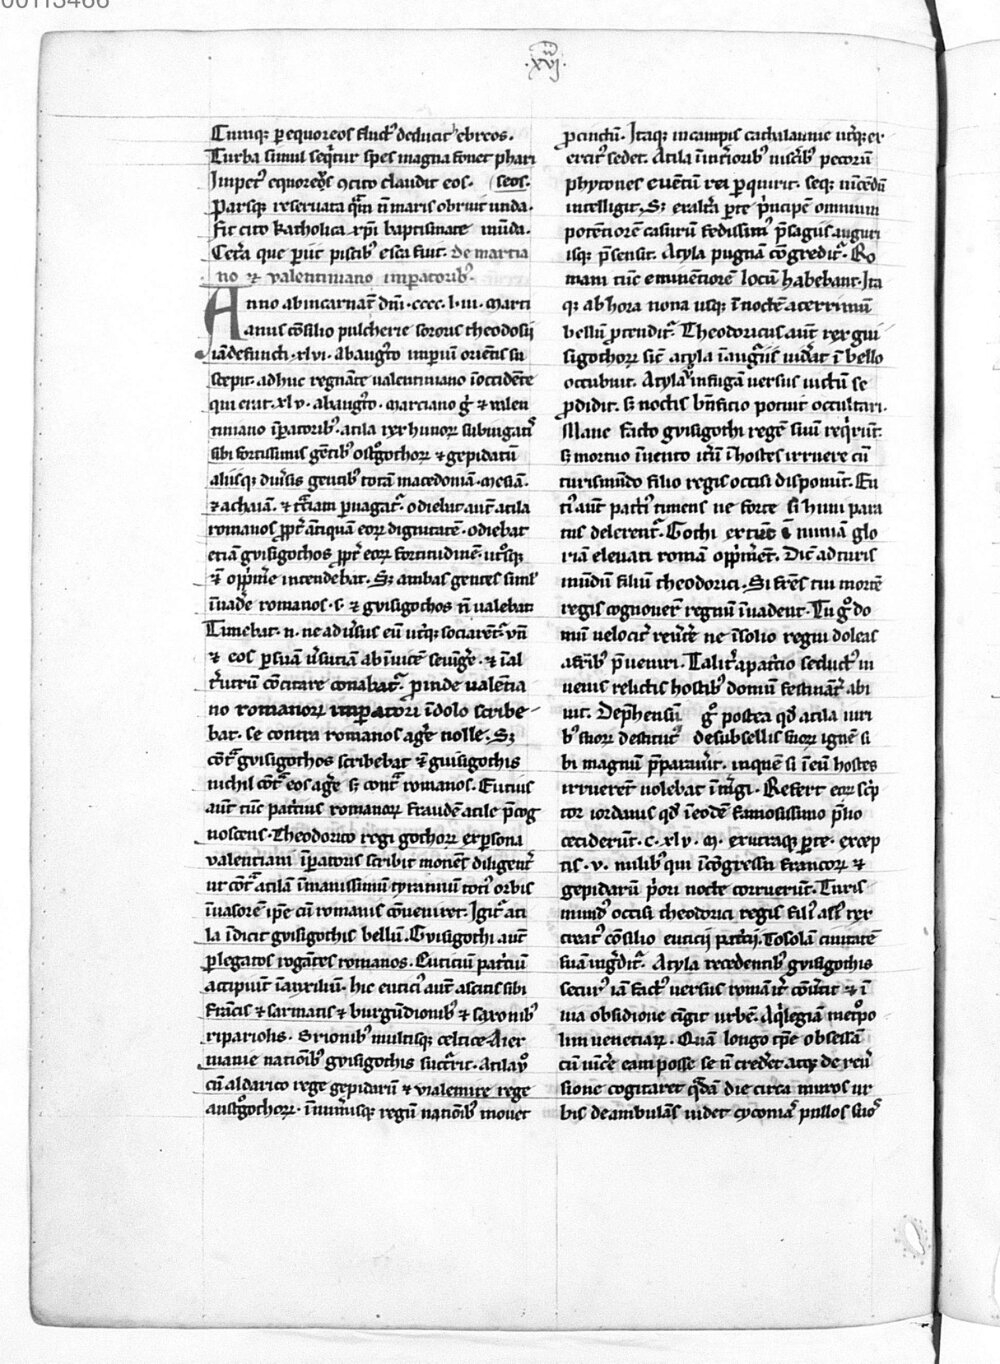 00113466
·xvi·
Cumq; p equoreos fluct᷒ deducit ebreos.
Turba simul seq̄tur spes magna fouet phari
Impet᷒ equoreos ꝯcito claudit eos. seos.
Parsq; reseruata q̄m n̄ maris obruit unda.
fit cito katholica xp̄i baptismate mūda.
Cet̄a que piit piscib᷒ esca fuit. de martia
no ⁊ ualentiniano imꝑatorib᷒.
Anno ab incarnat̄ dn̄i .cccc.l.iii. marti
anus cōsilio pulcherie sororis theodosij
iā defuncti .xlvi. ab augto imꝑiū orientis su
scepit. adhuc regnāte ualentiniano ī occidēte
qui erat .xlv. ab augto. Marciano ḡ ⁊ valen
tiniano īꝑatorib᷒. atila rex hunoꝝ subiugatis
sibi fortissimis gētib᷒ ostgothoꝝ ⁊ gepidarū
aliisq; diu̅sis gentib᷒ totā macedoniā. mesiā.
⁊ achaiā. ⁊ t̄ciam ꝑuagat̄. odiebat aut̄ atila
romanos ꝓpt̄ antiquā eoꝝ dignitatē. odiebat
etiā guisigothos ꝓpt̄ eoꝝ fortitudinē. ut̄osq;
⁊ opp̄me intendebat. S; ambas gentes siml̄
īuade romanos .s. ⁊ guisigothos n̄ ualebat
Timebat .n. ne adusus eū ut̄q; sociarēt̄. vn̄
⁊ eos ꝑ suā usutiā ab īuicē seiūge. ⁊ ī al
t̄utrū cōcitare conabat̄. ꝓinde ualentia
no romanoꝝ imꝑatori ī dolo scribe
bat. se contra romanos age nolle. S;
cōt̄ guisigothos scribebat ⁊ guisigothis
nichil cōt̄ eos age s; cont̄ romanos. Eutius
aut̄ tūc pat̄tius romanoꝝ fraudē atile p̄cog
noscens. Theodorico regi gothoꝝ ex ꝑsona
valentiani īꝑatoris scribit monēs diligent̄
ut cōt̄ atilā īmanissimū tyrannū toti᷒ orbis
īuasorē ip̄e cū romanis cōueniret. Igit̄ ati
la īdicit guisigothis bellū. Guisigothi aut̄
ꝑ legatos rogātes romanos. Euticiū pat̄ciū
accipiūt ī auxiliū. hic eutici᷒ aut̄ ascitis sibi
francis ⁊ sarmatis ⁊ burgūdionib᷒ ⁊ saxonib᷒
ripariolis. Brionib᷒ multisq; celtice. A ger
manie nationib᷒ guisigothis succ̄rit. atila ỽ
cū aldarico rege gepidarū ⁊ vialemire rege
austgothoꝝ. īnumisq; regū nationib᷒ mouet
ꝓcinctū. Itaq; in campis cathalaunie ut̄q; ex
ercit᷒ sedet. Atila ī int̄iorib᷒ uiscib᷒ pecorū
phytones euentū rei ꝑquirit. seq; uīcēdū
intelligit. S; ex alt̄a ꝑte p̄ncipē omnium
potētiorē casurū fedissimi᷒ p̄sagiis auguri
isq; p̄sensit. Atyla pugnā cōgredit̄. Ro
mani tūc eminētiorē locū habebant. Ita
q; ab hora nona usq; ī noctē acerrimū
bellū ꝓtendit̄. Theodoricus aut̄ rex gui
sigothoꝝ sic̄ atyla ī auguiis uidat ī bello
occubuit. Atyla in fugā uersus uictū se
ꝓdidit. s; noctis bn̄ficio potuit occultari.
Mane facto guisigothi regē suū req̄rūt.
s; mortuo īuento it̄ū ī hostes irruere cū
turismūdo filio regis occisi disponūt. Eu
ti᷒ aut̄ pat̄ti᷒ timens ne forte si huni peni
tus delerent̄. Gothi ex tunc ī nimiā glo
riā eleuati romā opp̄mēt. Dic̄ ad turis
mūdū filiū theodorici. Si fr̄es tui mortē
regis cognouer̄ regnū īuadent. Tu g̊ do
mū uelocit̄ reūte ne ī solio regni doleas
a frīb᷒ p̄ueniri. Talit̄ a pat̄cio seduct᷒ iu
uenis relictis hostib᷒ domū festināt̄ abi
uit. Dep̄hensū g̊ postea qd̄ atila uiri
b᷒ suoꝝ destitut᷒ de subsellis suoꝝ ignē si
bi magnū p̄parauit. in quē si ī eū hostes
irruerēt uolebat īm̄gi. Refert eoꝝ sc̄p
tor iordanus qd̄ ī eodē famosissimo p̄lio
ceciderūt .c.xlv. m. ex ut̄aq; ꝑte. excep
tis .v. milib᷒ qui ī cōgressu francoꝝ ⁊
gepidarū p̄ori nocte corruerūt. Turis
mund᷒ occisi theodorici regis fili᷒ ast̄ rex
creat᷒ cōsilio euticij pat̄cij. Tosolā ciuitatē
suā ingdit̄. Atyla recedentib᷒ guisigothis
secur᷒ iā fact᷒ uersus romā it̄ cōūtit ⁊ ī
uia obsidione cīgit urbē. Aq̄legiā met̊po
lim uenetiaꝝ. Quā longo tp̄e obsessā
cū uīce eam posse se n̄ credet. atq; de recū
sione cogitaret q̄dā die circa muros ur
bis deambulās uidet cyconiā pullos suo᷒